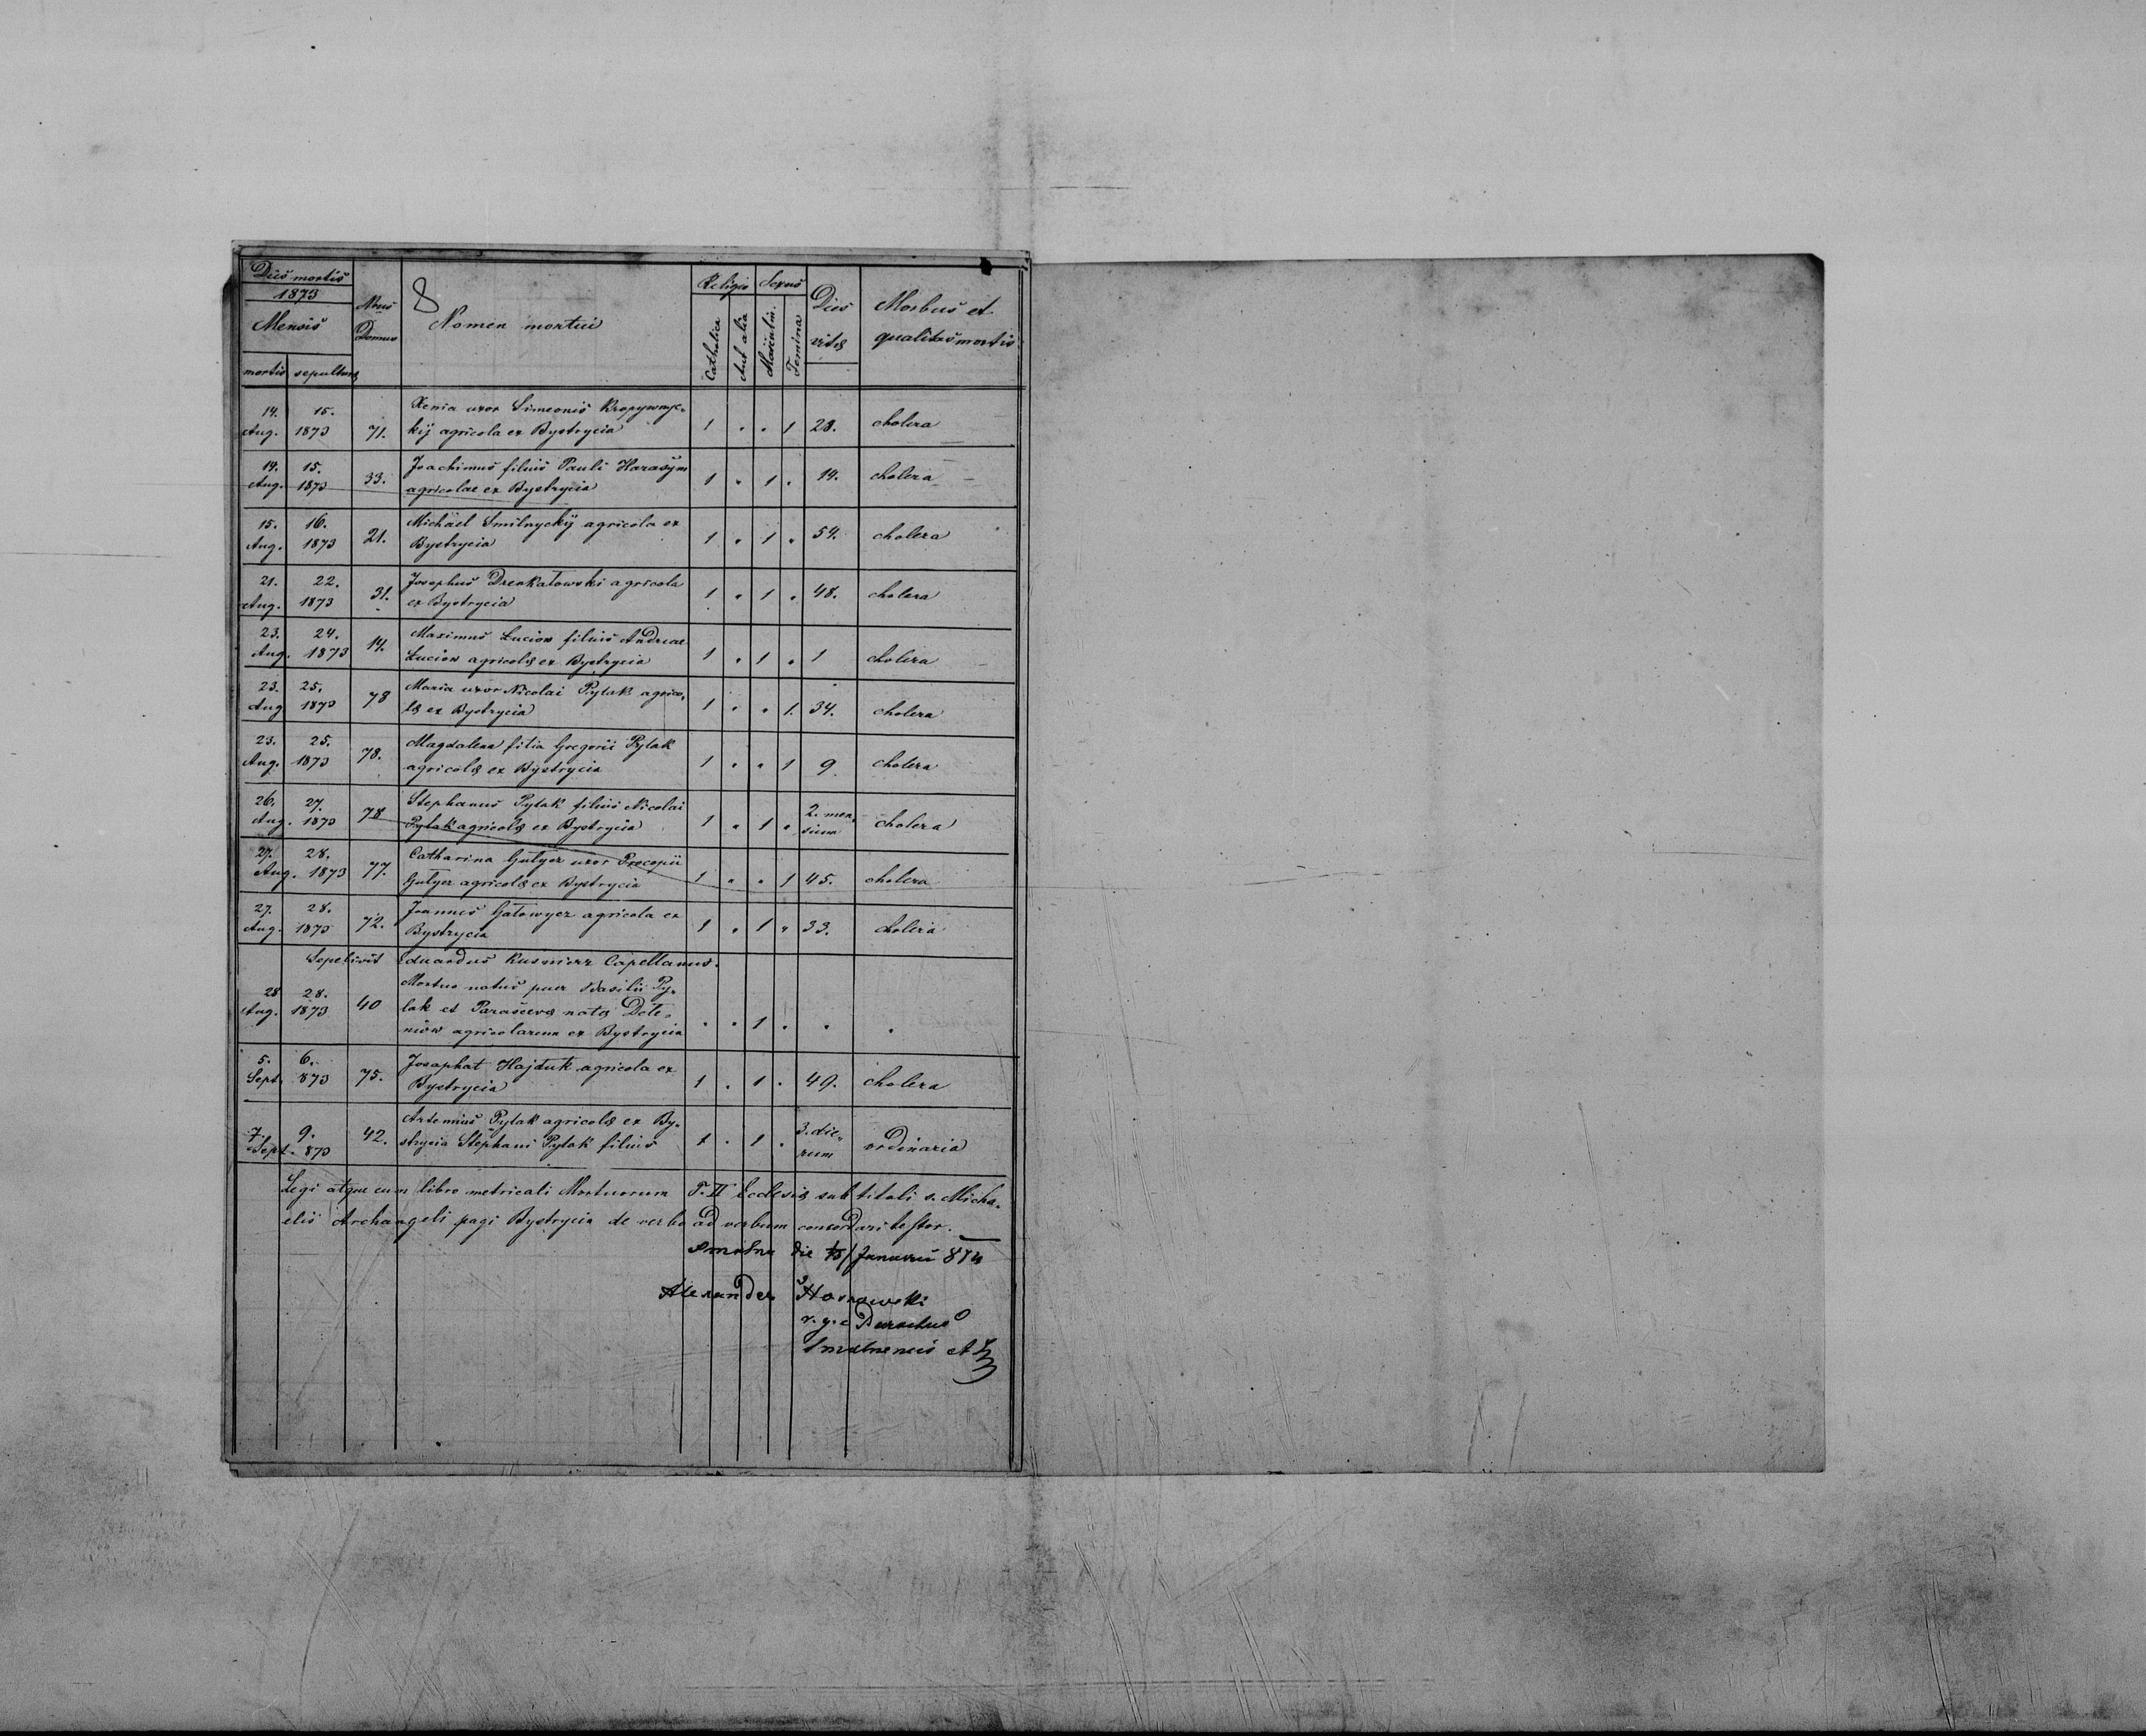 Dies mortis
1873
Mensis
mortis sepulturæ
Nrus
Domus
8
Nomen mortui
Religio
Catholica
Aut alia
Sexus
Masculin.
Femina
Dies
vitæ
Morbus et
qualitas mortis
14. 15.
Aug. 1873 71. Xenia uxor Simeonis Kropywnyc-
kij agricola ex Bystrycia 1 . . 1 28. cholera
14. 15.
Aug. 1873 33. Joachimus filius Pauli Harasym
agricolae ex Bystrycia 1 . 1 . 14. cholera
15. 16.
Aug. 1873 21. Michael Smilnyckij agricola ex
Bystrycia 1 . 1 . 54. cholera
21. 22.
Aug. 1873 31. Josephus Drenkatowski agricola
ex Bystrycia 1 . 1 . 48. cholera
23. 24.
Aug. 1873 14. Maximus Luciow filius Andreae
Luciow agricolæ ex Bystrycia 1 . 1 . 1 cholera
23. 25.
Aug 1873 78 Maria uxor Nicolai Pytak agrico-
læ ex Bystrycia 1 . . 1. 34. cholera
23. 25.
Aug. 1873 78. Magdalena filia Gregorii Pytak
agricolæ ex Bystrycia 1 . . 1 9. cholera
26. 27.
Aug. 1873 78 Stephanus Pytak filius Nicolai
Pytak agricolæ ex Bystrycia 1 . 1 . 2. men-
sium cholera
27. 28.
Aug. 1873 77. Catharina Gutyez uxor Procopii
Gutyez agricolæ ex Bystrycia 1 . . 1 45. cholera
27. 28.
Aug. 1873 72. Joannes Gatowyez agricola ex
Bystrycia 1 . 1 . 33. cholera
Sepelivit Eduardus Kusnierz Capellanus.
28 28.
Aug. 1873 40 Mortuo natus puer Wasilii Py-
tak et Parascevæ natæ Dete-
niów agricolarum ex Bystrycia . . 1 . . .
5. 6.
Sept. 873 75. Josaphat Hajduk agricola ex
Bystrycia 1 . 1 . 49. cholera
7. 9.
Sept. 873 42. Artemius Pytak agricolæ ex By-
strycia Stephani Pytak filius 1 . 1 . 3. die-
rum ordinaria
Legi atque cum libro metricali Mortuorum T. II Ecclesiæ sub tituli s. Micha-
elis Archangeli pagi Bystrycia de verbo ad verbum concordari testor.
Smolna die Januarii 874
Alexander
r. g. c Parochus
Smolnensis